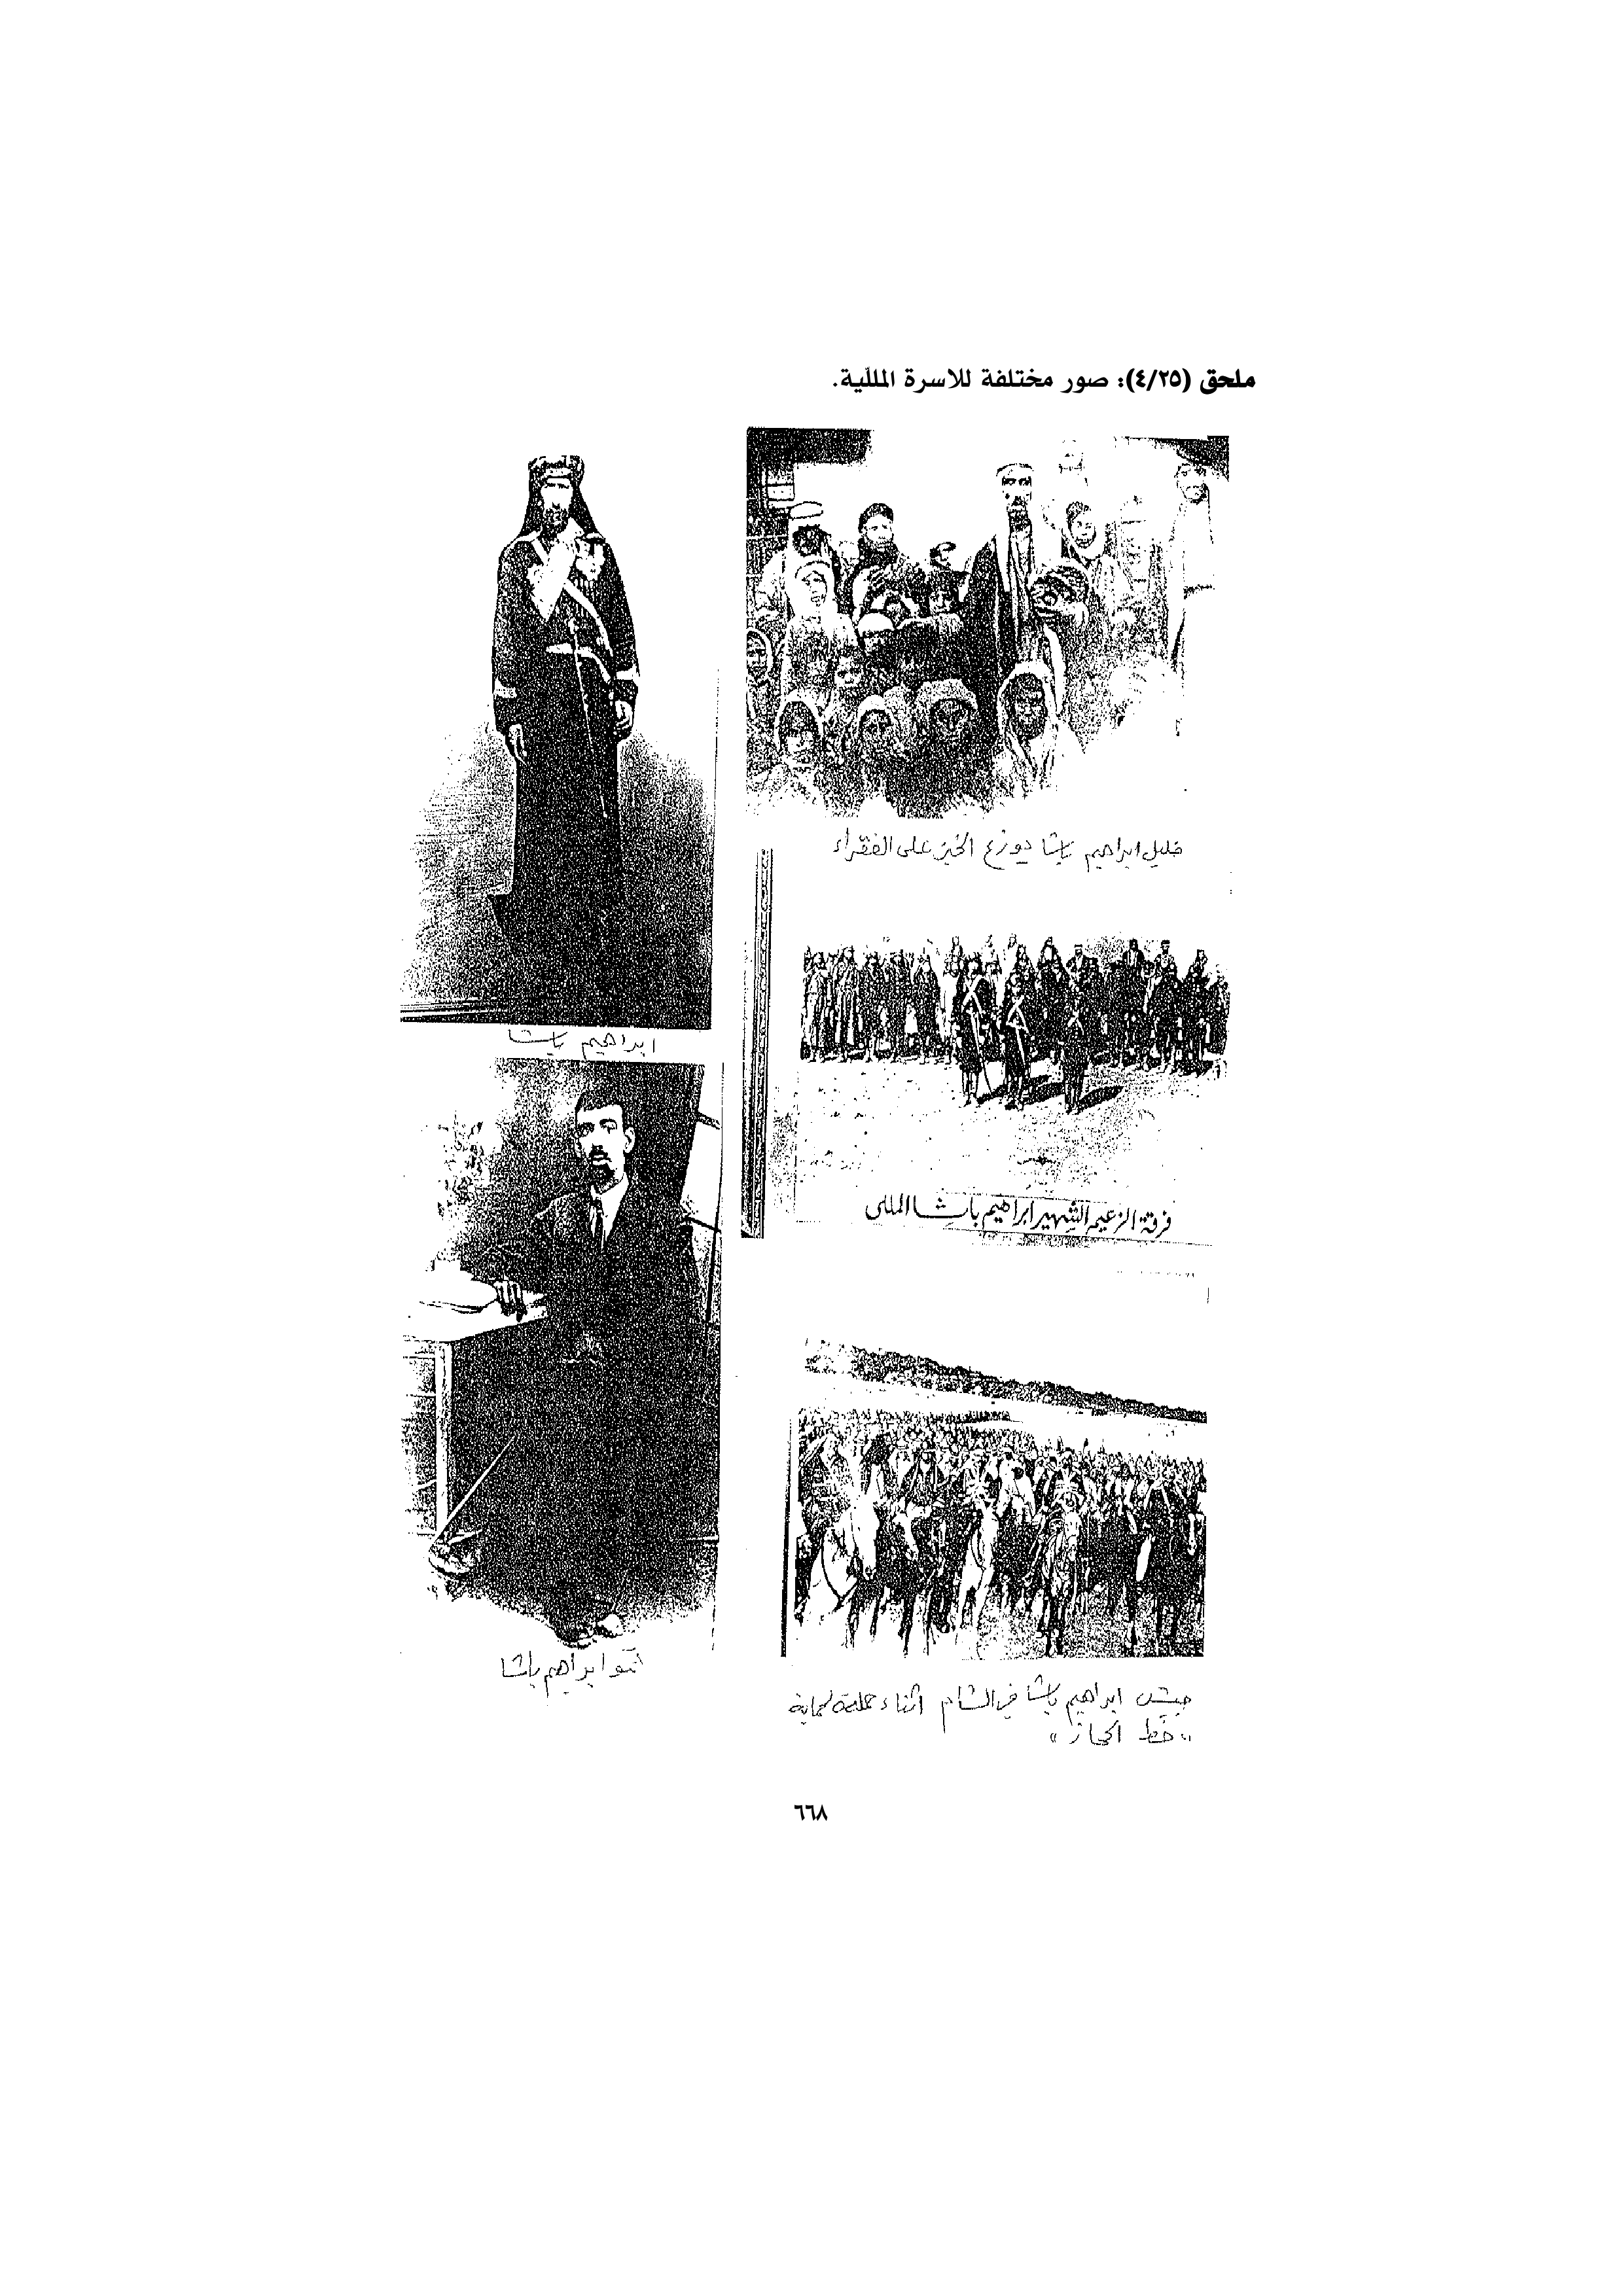 ملحق (٤/٢٥): صور مختلفة للاسرة المللّية.
خليل ابراهيم باشا يوزع الخبز على الفقراء
ابراهيم باشا
فرقة الزعيم الشهير ابراهيم باشا المللي
تمو ابراهيم باشا
جيش ابراهيم باشا في الشام اثناء حملة لحماية
«خط الحجاز»
٦٦٨